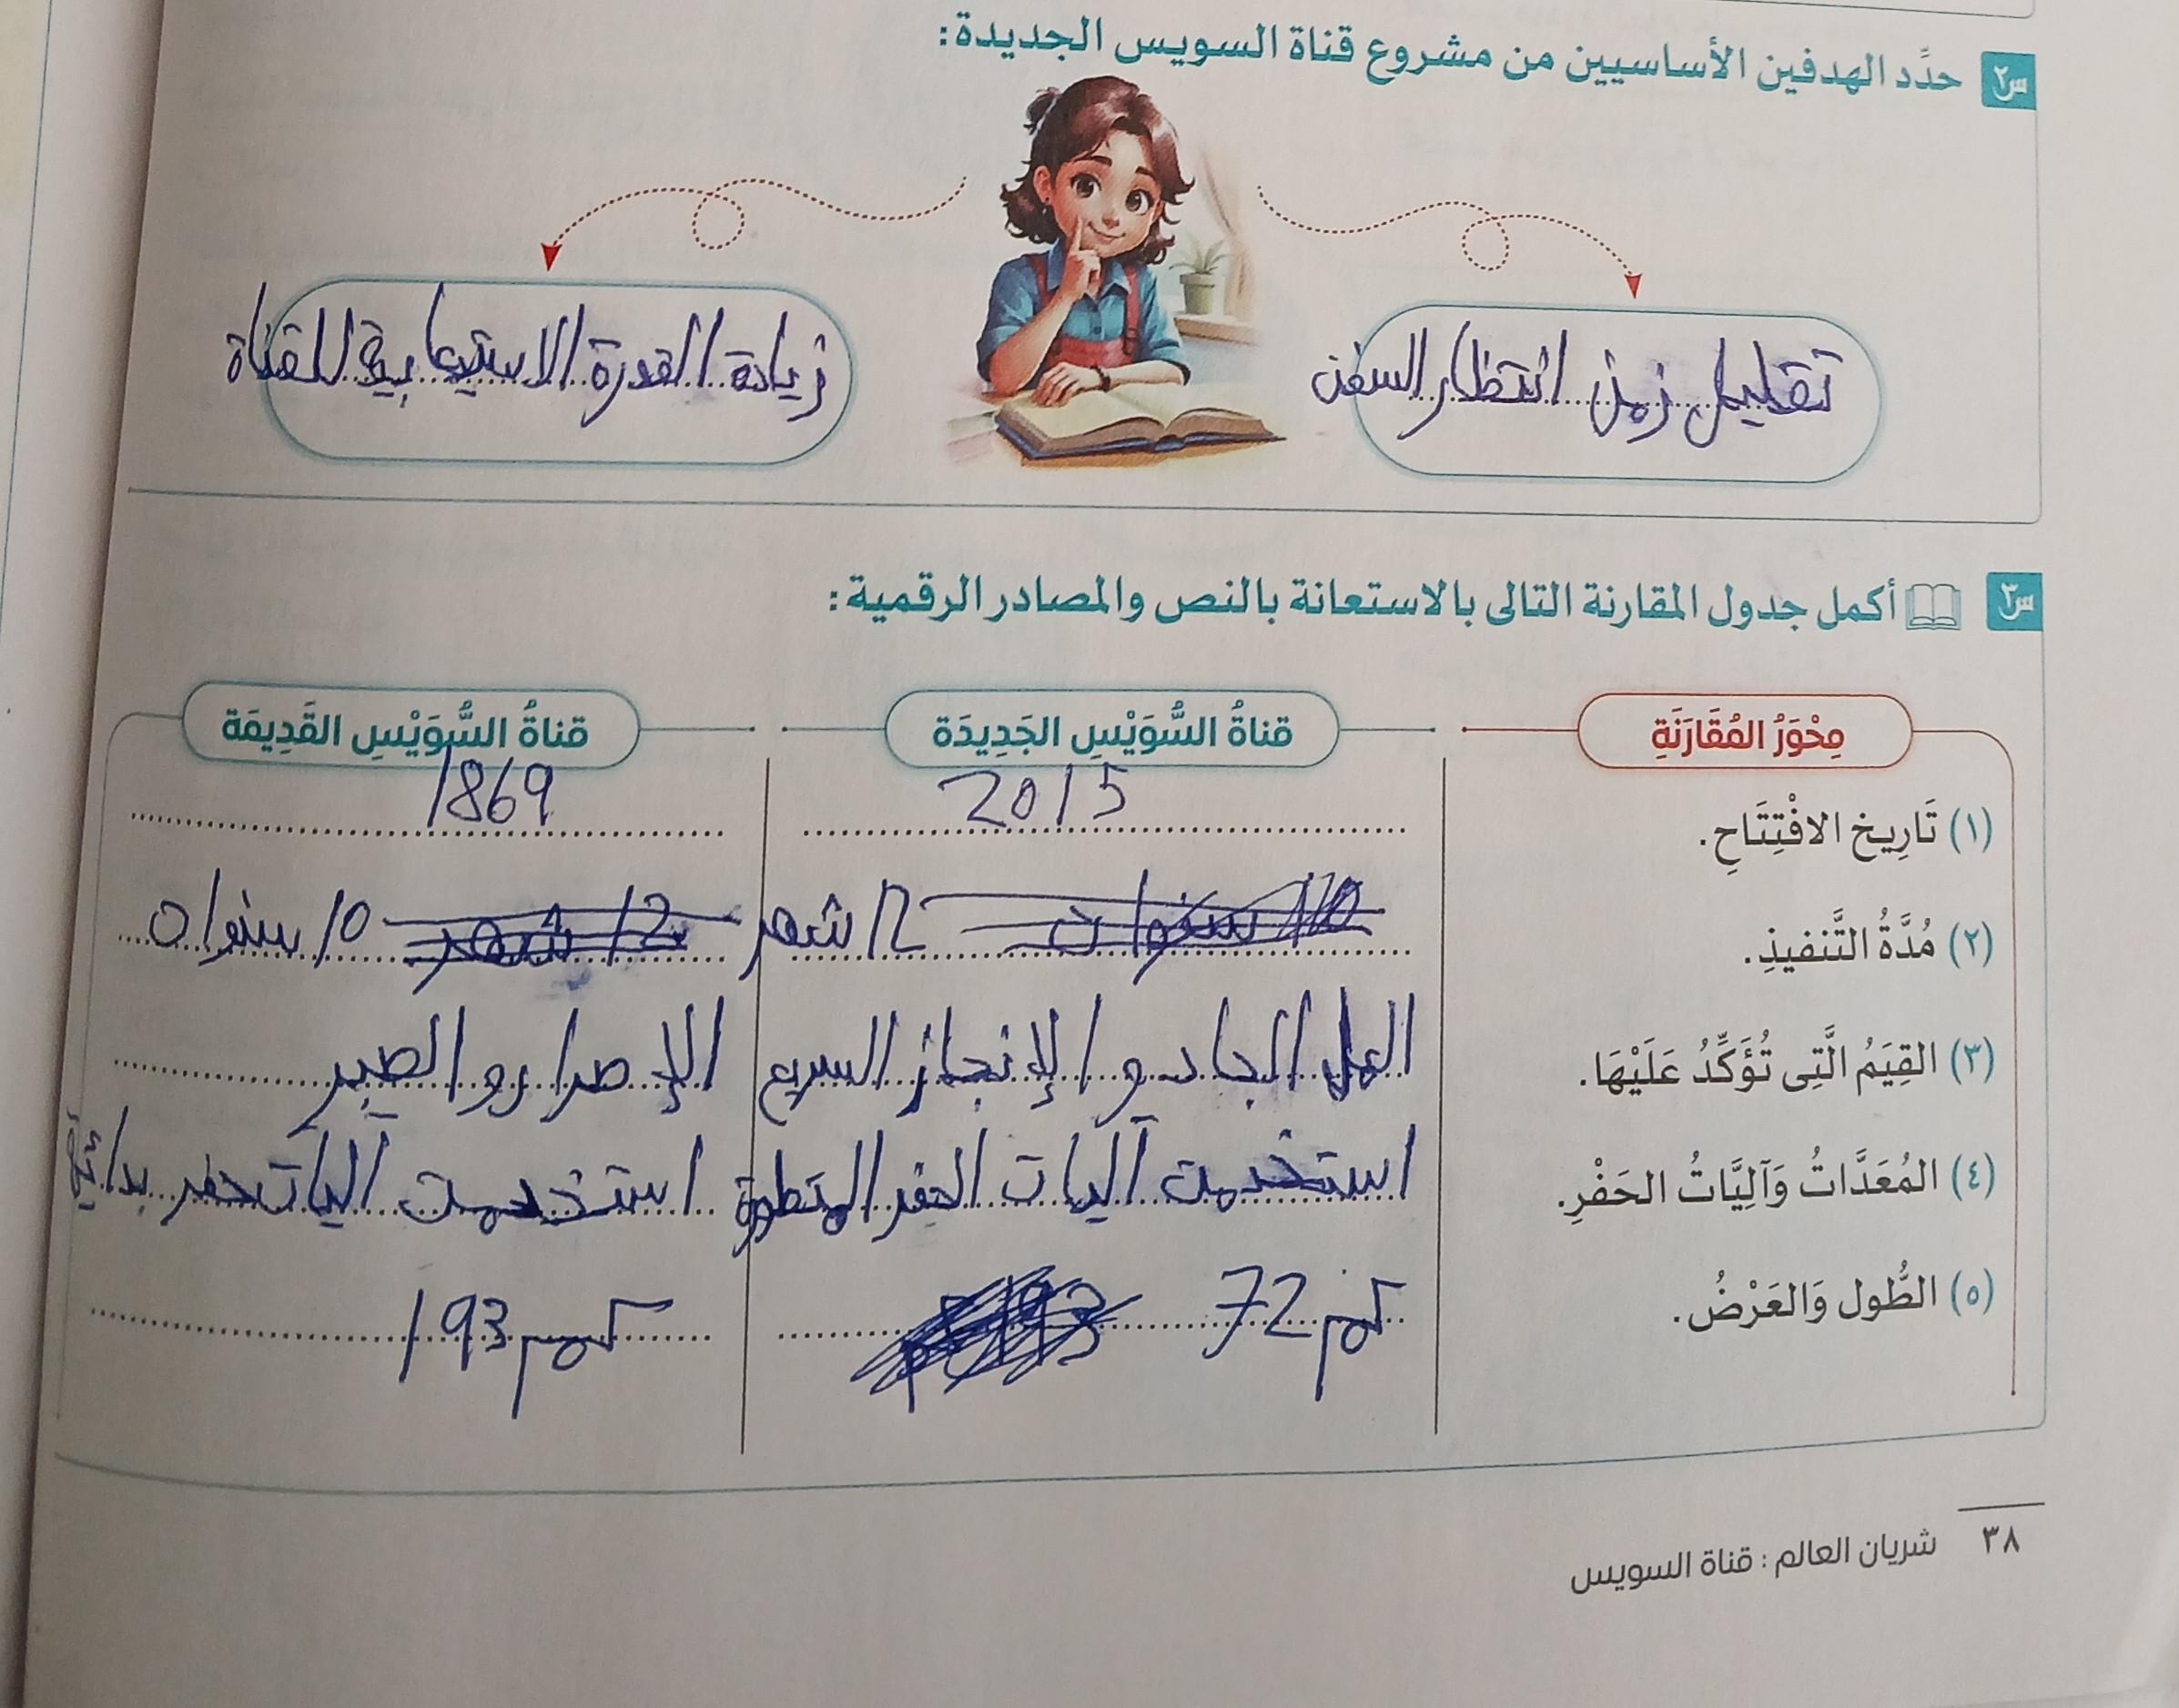 س٢ حدِّد الهدفين الأساسيين من مشروع قناة السويس الجديدة:
تقليل زمن انتظار السفن
زيادة القدرة الاستيعابية للقناة
س٣ أكمل جدول المقارنة التالى بالاستعانة بالنص والمصادر الرقمية:
مِحْوَرُ المُقَارَنَةِ قناةُ السُّوَيْسِ الجَدِيدَة قناةُ السُّوَيْسِ القَدِيمَة
(١) تَارِيخ الافْتِتَاحِ. 2015 1869
(٢) مُدَّةُ التَّنفيذِ. 10 سنوات 12 شهر 12 شهر 10 سنوات
(٣) القِيَمُ الَّتِى تُؤَكِّدُ عَلَيْهَا. العمل الجاد و الإنجاز السريع الإصرار و الصبر
(٤) المُعَدَّاتُ وَآلِيَّاتُ الحَفْرِ. استخدمت آليات الحفر المتطورة استخدمت آليات حفر بدائية
(٥) الطُّول وَالعَرْضُ. 72 كم 193 كم
٣٨ شريان العالم : قناة السويس